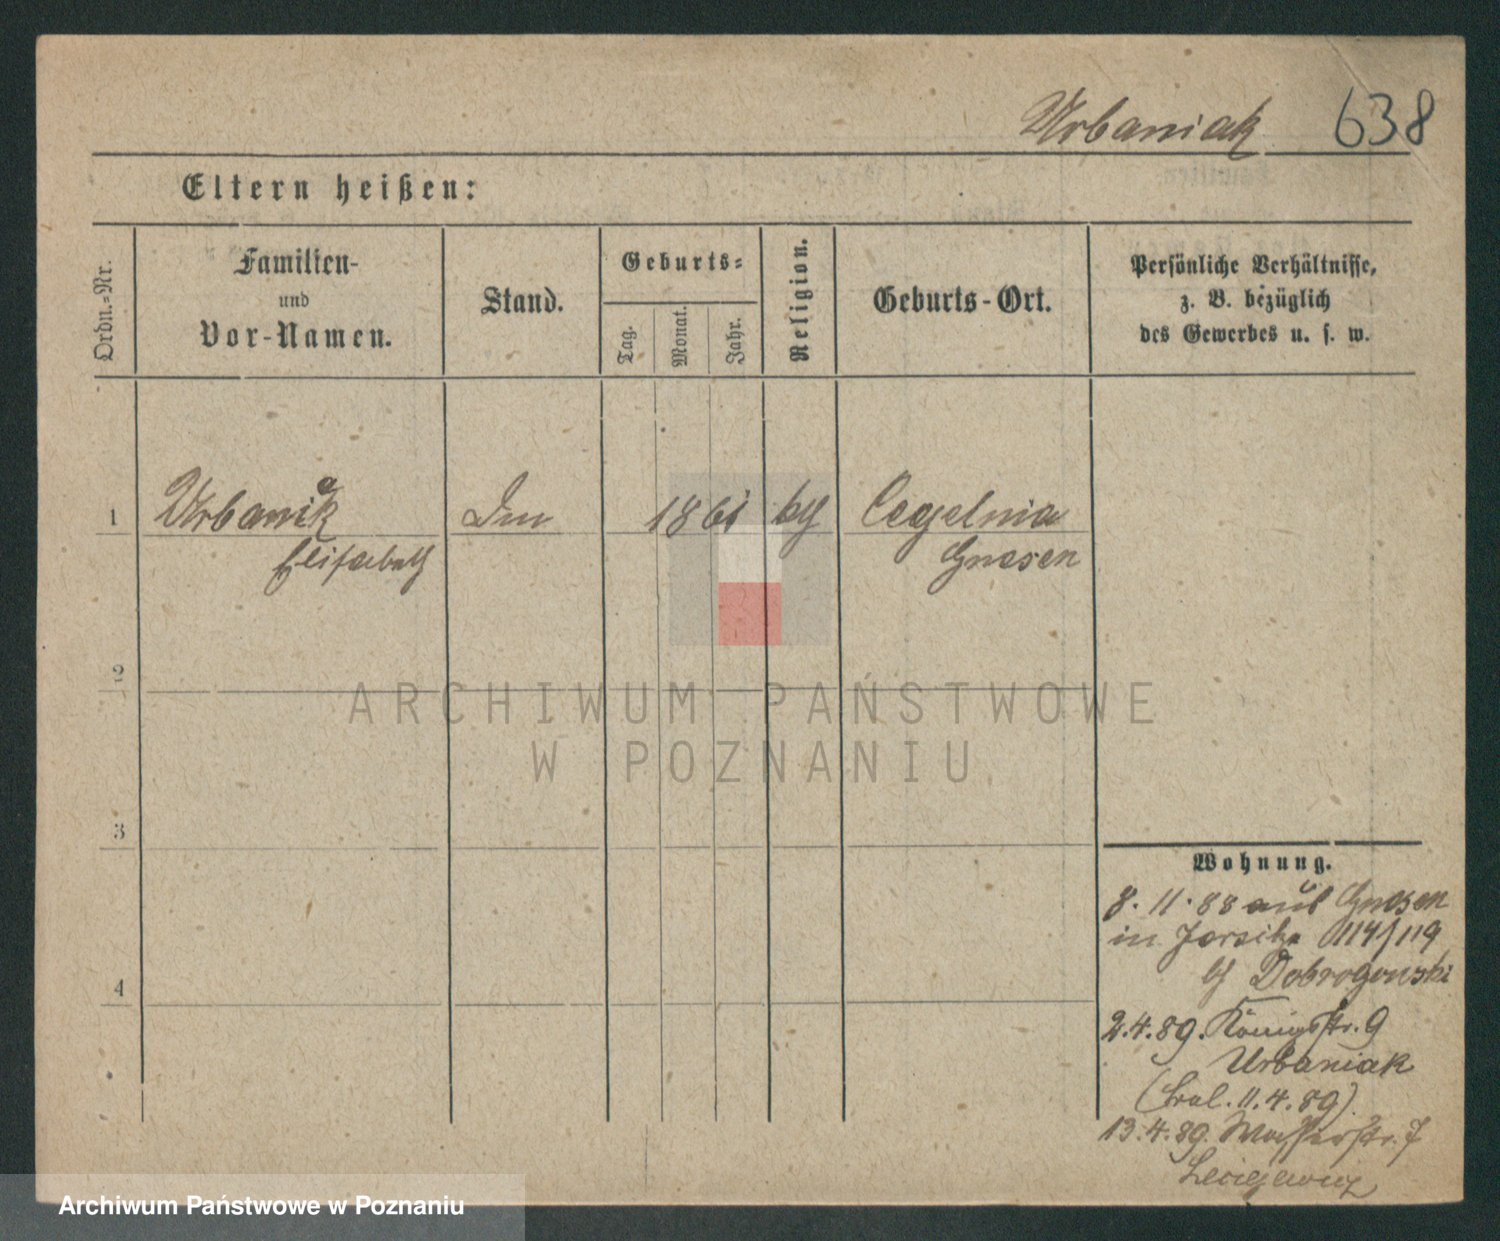 Urbaniak 638
Eltern heißen:
Ordn.-Nr.
Familien-
und
Vor-Namen.
Stand.
Geburts-
Tag.
Monat.
Jahr.
Religion.
Geburts-Ort.
Persönliche Verhältnisse,
z. B. bezüglich
des Gewerbes u. s. w.
1 Urbaniak 1861 Cegelnia
Elisabeth Gnesen
2
3
4
ARCHIWUM PAŃSTWOWE
W POZNANIU
Wohnung.
8.11.88 aus Gnesen
in Jersitz 114/119
Dobrogowski
2.4.89. Königsstr. 9
Urbaniak
11.4.89)
13.4.89. Wasserstr. 7
Archiwum Państwowe w Poznaniu